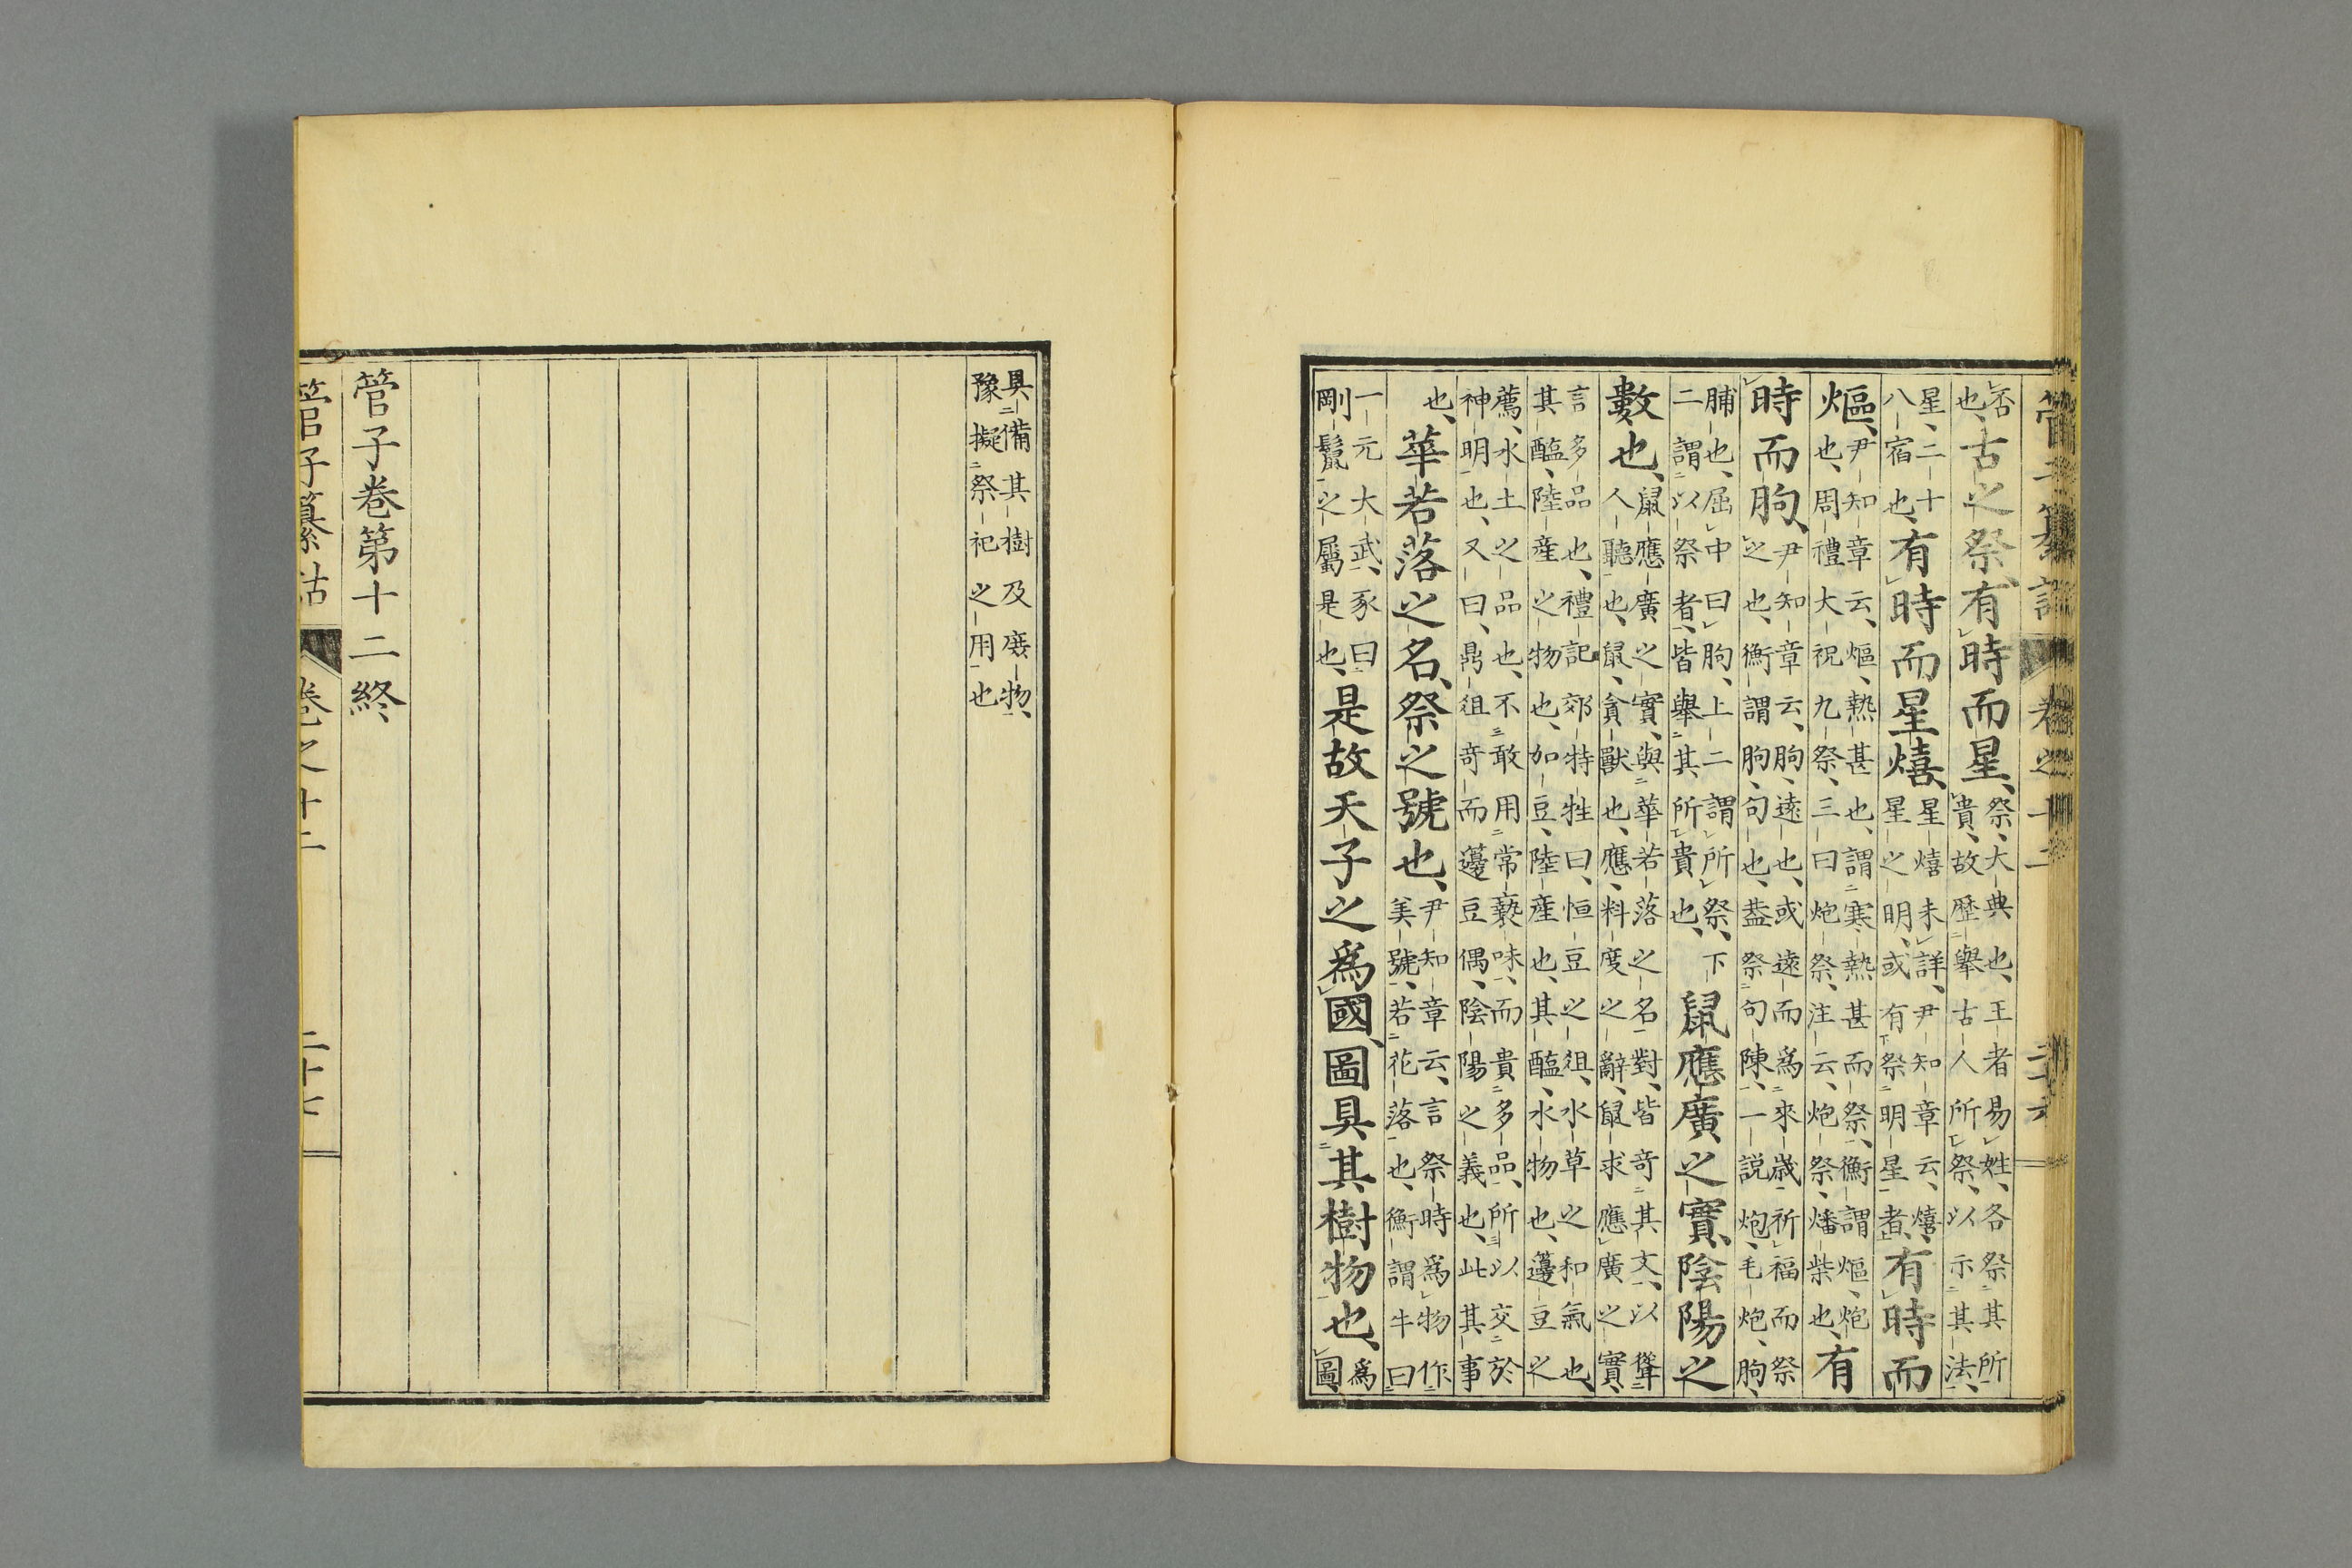 管子纂詁 卷之十二 二十六
否也、古之祭、有時而星、祭、大典也、王者易姓、各祭其所貴、故歴舉古人所祭、以示其法、
星、二十八宿也、有時而星熺、星熺未詳、尹知章云、熺、星之明、或有祭明星者、有時而
熰、尹知章云、熰、熱甚也、謂寒熱甚而祭、衡謂熰、炮也、周禮大祝九祭、三曰炮祭、注云、炮祭、燔柴也、有
時而朐、尹知章云、朐、遠也、或遠而爲來歲祈福而祭之也、衡謂朐、句也、葢祭句陳、一説炮、毛炮、朐、
脯也、屈中曰朐、上二謂所祭、下二謂以祭者、皆舉其所貴也、鼠應廣之實、陰陽之
數也、鼠應廣之實、與華若落之名對、皆竒其文、以聳人聽也、鼠、貪獸也、應、料度之辭、鼠求應廣之實、
言多品也、禮記郊特牲曰、恒豆之菹、水草之和氣也、其醢、陸産之物也、加豆、陸産也、其醢、水物也、籩豆之
薦、水土之品也、不敢用常褻味、而貴多品、所以交於神明也、又曰、鼎俎竒而籩豆偶、陰陽之義也、此其事
也、華若落之名、祭之號也、尹知章云、言祭時爲物作美號、若花落也、衡謂牛曰
一元大武、豕曰剛鬣之屬是也、是故天子之爲國、圖具其樹物也、爲圖、
具備其樹及庶物、豫擬祭祀之用也
管子卷第十二終
管子纂詁 卷之十二 二十七